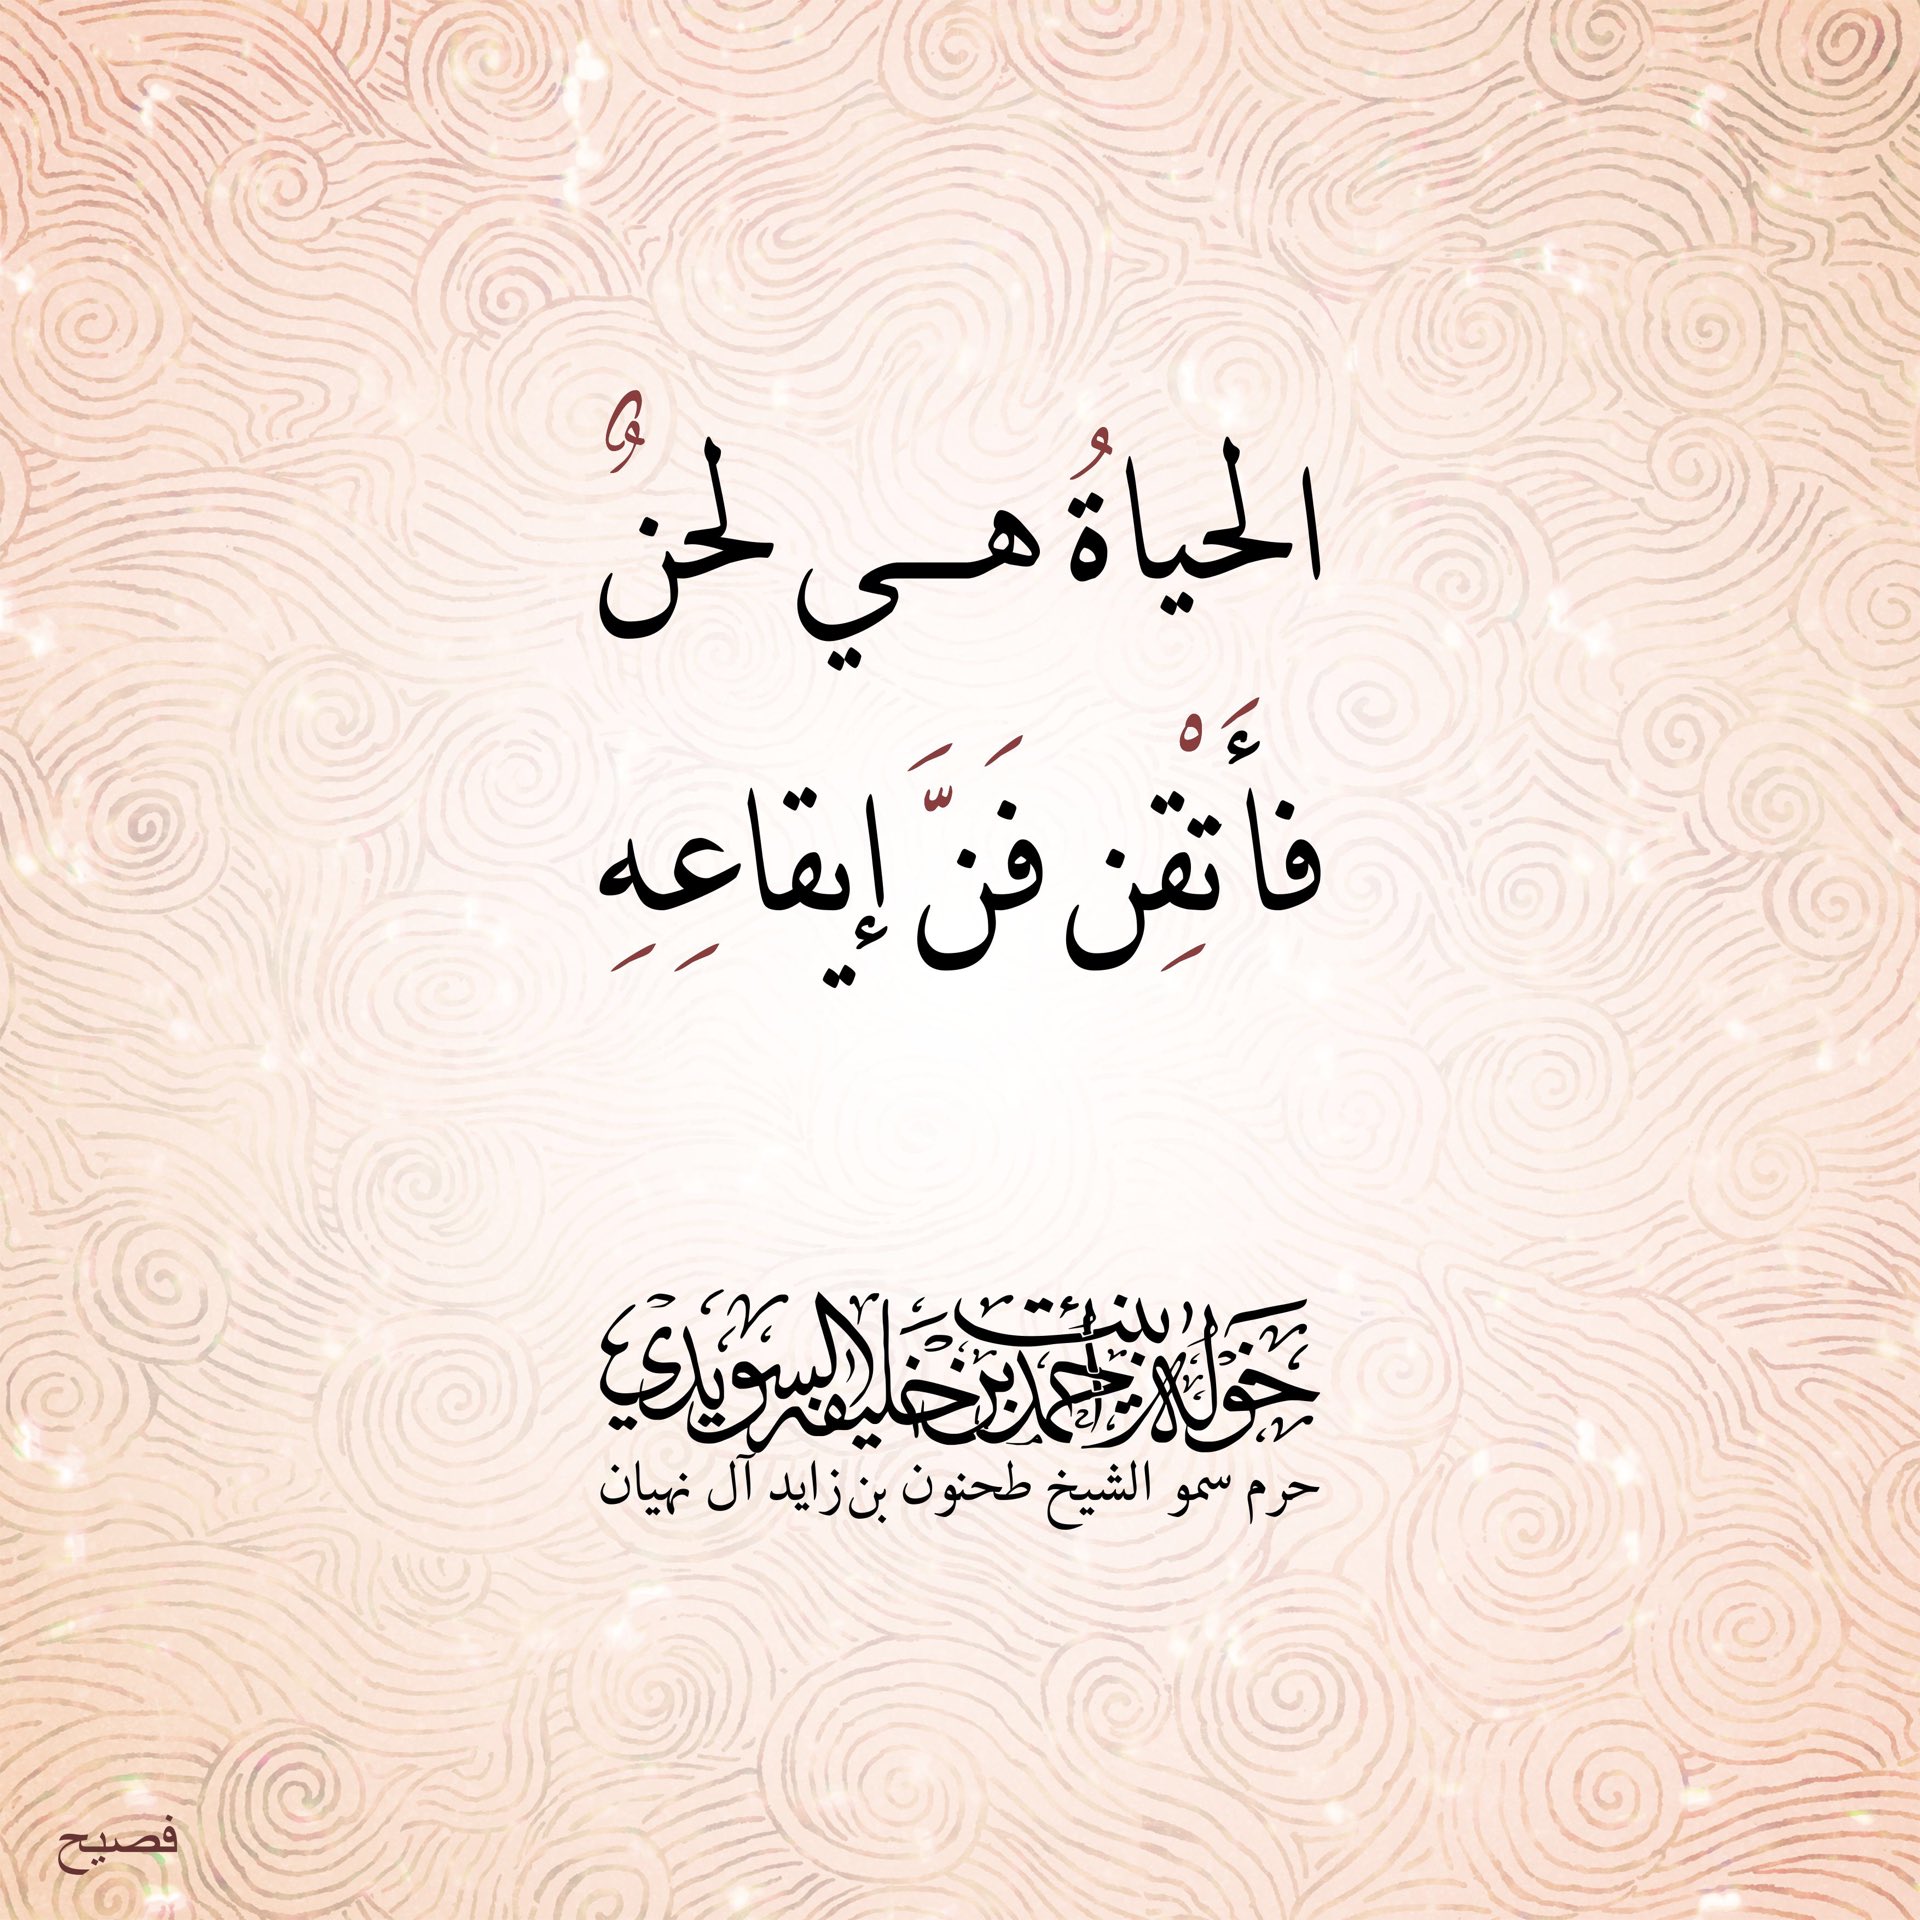 الحياةُ هي لحنٌ
فأَتْقِن فَنَّ إيقاعِهِ
خولة بنت أحمد بن خليفة السويدي
حرم سمو الشيخ طحنون بن زايد آل نهيان
فصيح